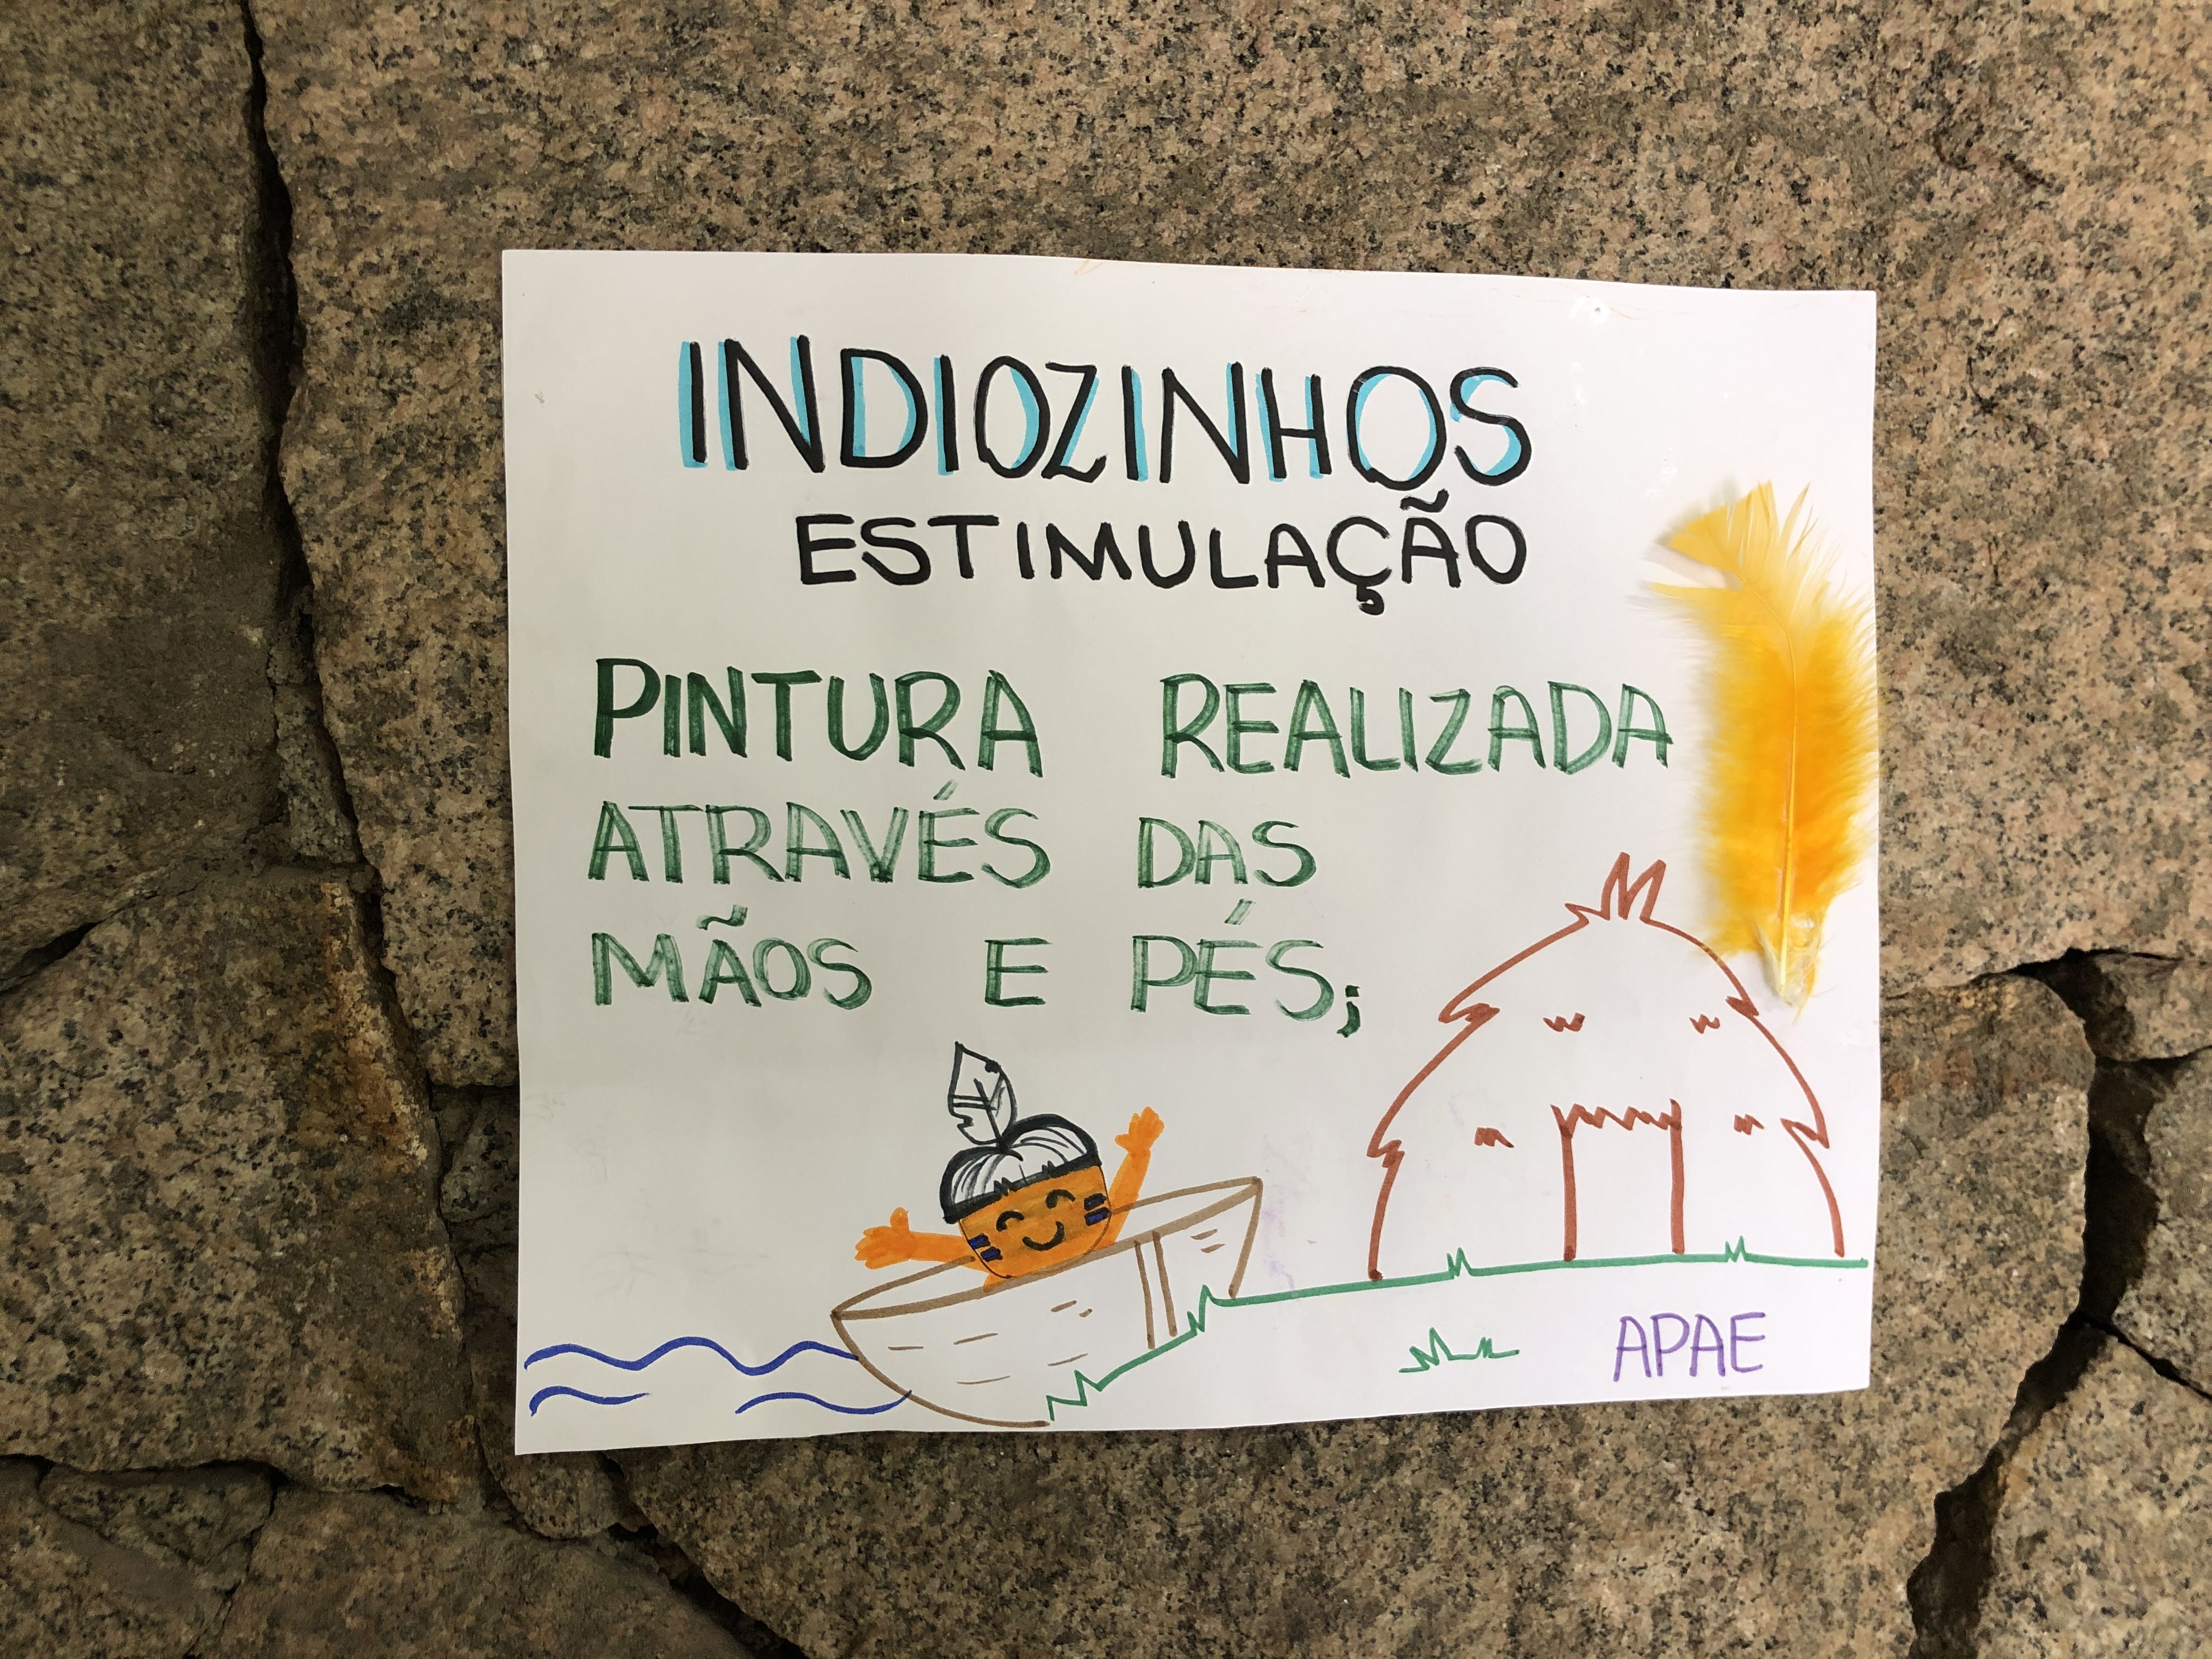 INDIOZINHOS
ESTIMULAÇÃO
PINTURA REALIZADA
ATRAVÉS DAS
MÃOS E PÉS;
APAE